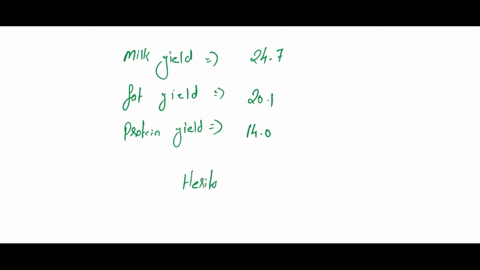 Milk yield => 24.7
fat yield => 20.1
Protein yield => 14.0
Herita